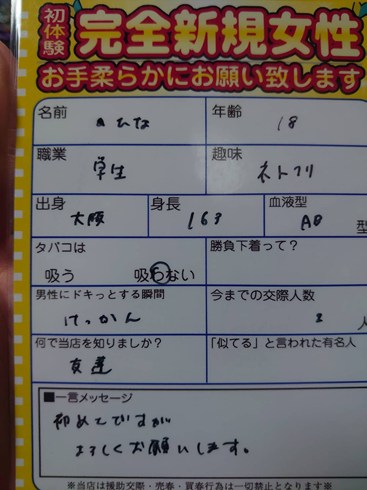 初体験 完全新規女性
お手柔らかにお願い致します
名前 ひな 年齢 18
職業 学生 趣味 ネトフリ
出身 大阪 身長 163 血液型 AB 型
タバコは 吸う 吸わない 勝負下着って?
男性にドキっとする瞬間 けっかん 今までの交際人数 2 人
何で当店を知りましたか? 友達 「似てる」と言われた有名人
■一言メッセージ
初めてですが
よろしくお願いします。
※当店は援助交際・売春・買春行為は一切禁止となります※